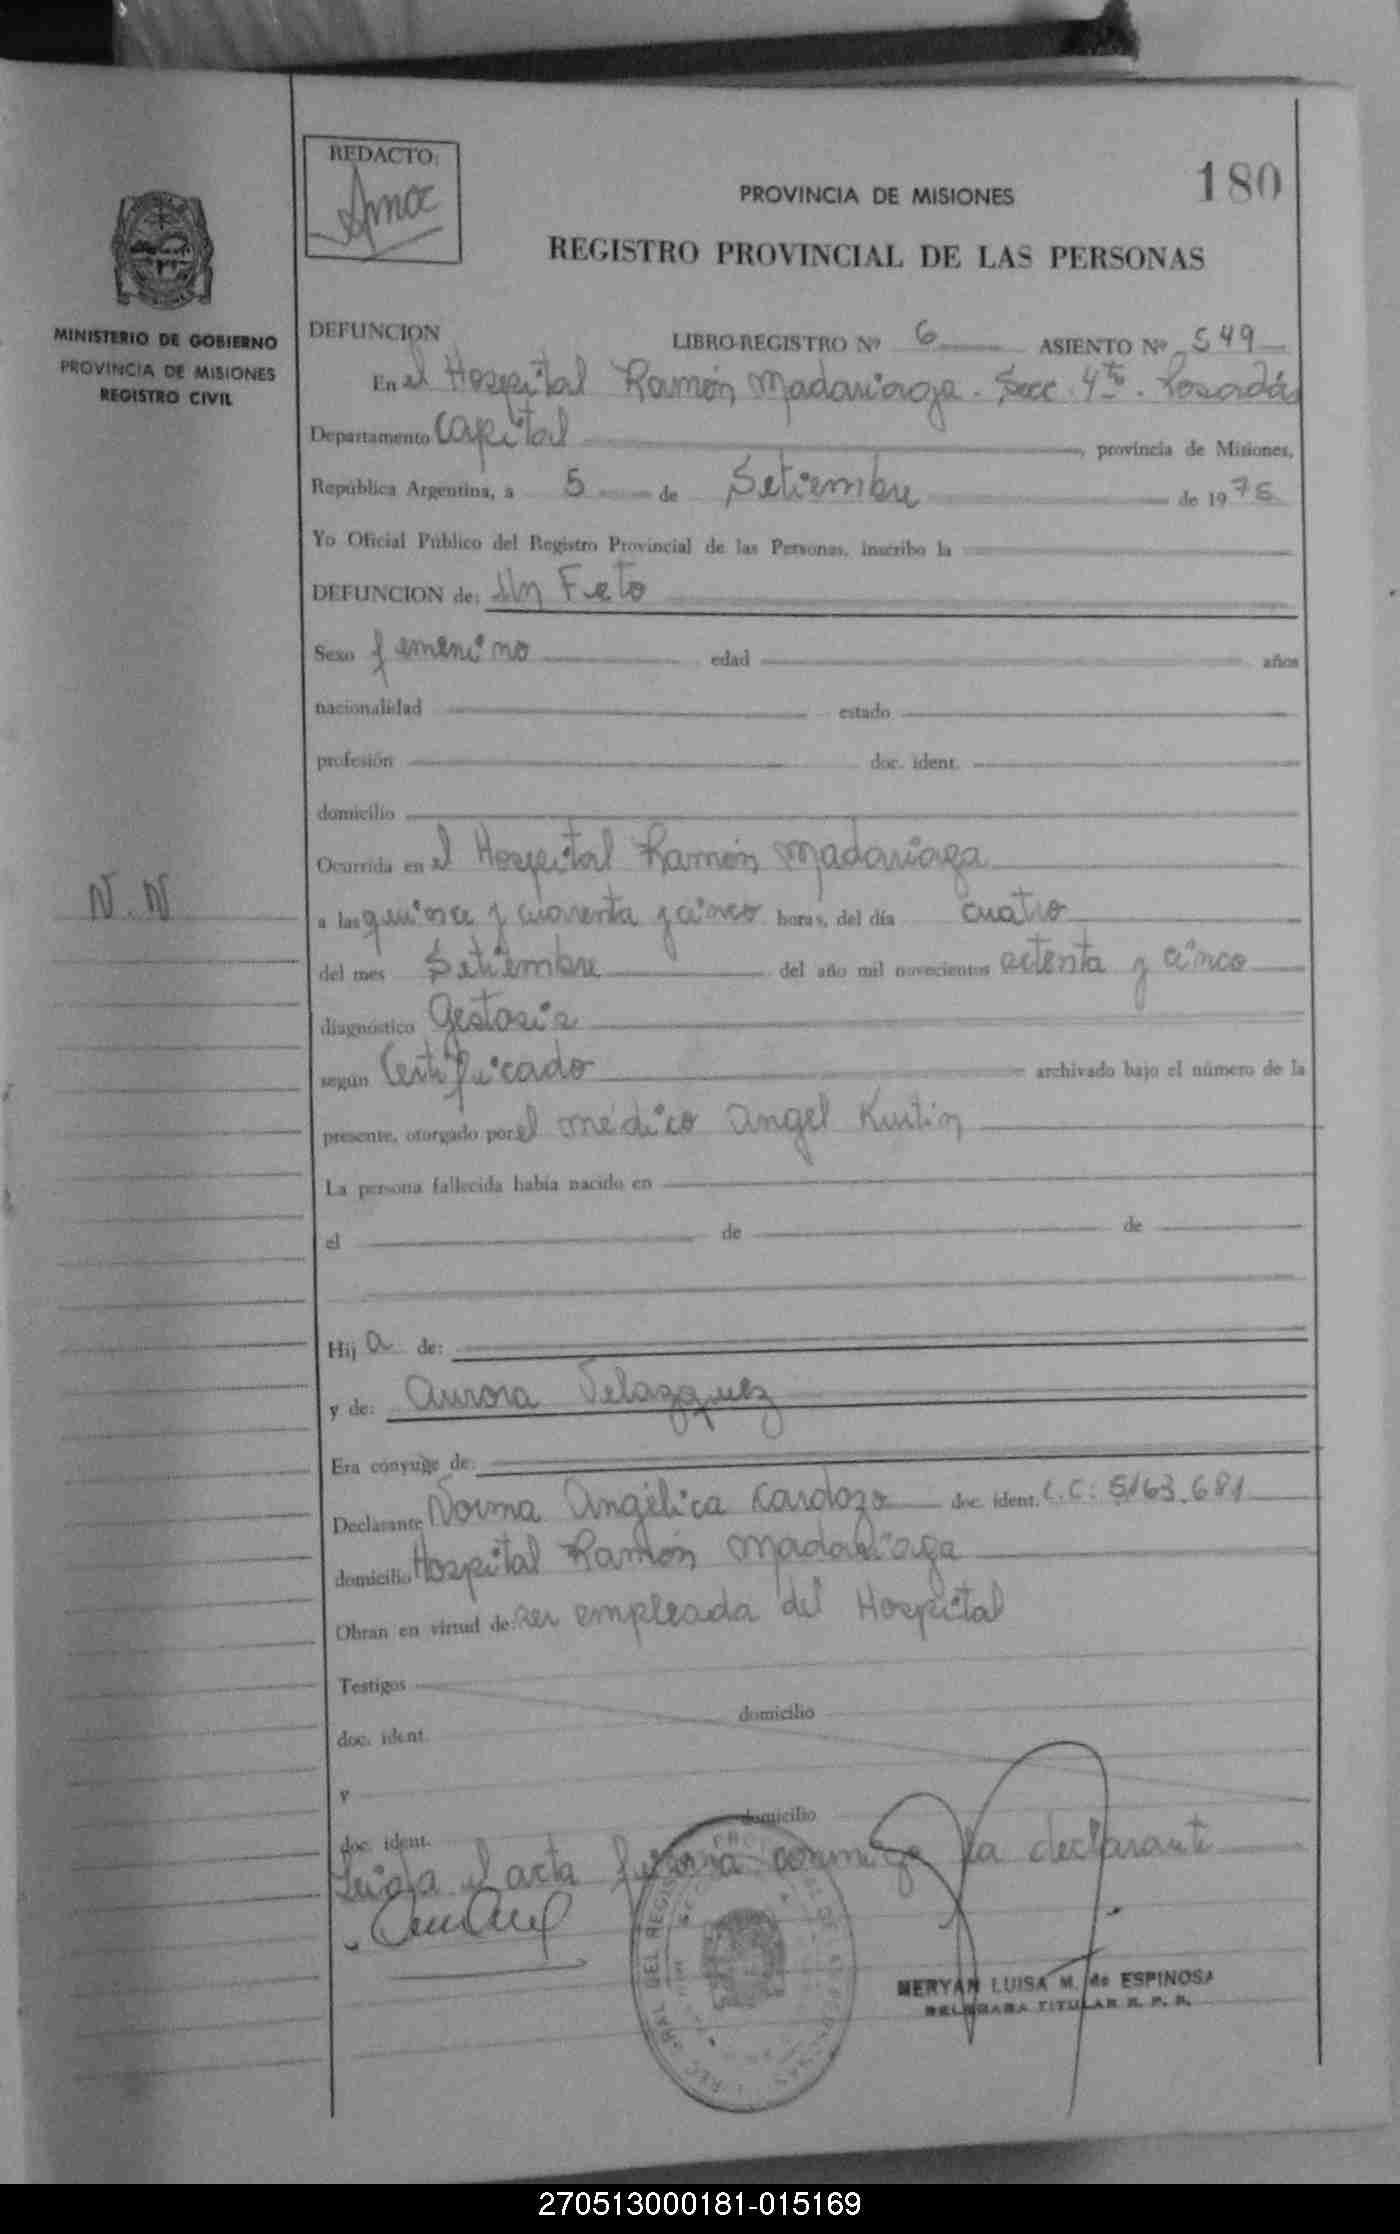 REDACTO:
180
PROVINCIA DE MISIONES
REGISTRO PROVINCIAL DE LAS PERSONAS
MINISTERIO DE GOBIERNO
PROVINCIA DE MISIONES
REGISTRO CIVIL
DEFUNCION LIBRO-REGISTRO Nº 6 ASIENTO Nº 549
En el Hospital Ramón Madariaga - Secc. 4ta. Posadas
Departamento Capital, provincia de Misiones,
República Argentina, a 5 de Setiembre de 1975
Yo Oficial Público del Registro Provincial de las Personas, inscribo la
DEFUNCION de: Un Feto
Sexo femenino edad años
nacionalidad estado
profesión doc. ident.
domicilio
Ocurrida en el Hospital Ramón Madariaga
N.N
a las quince y cuarenta y cinco horas, del día cuatro
del mes Setiembre del año mil novecientos setenta y cinco
diagnóstico Gestosis
según Certificado archivado bajo el número de la
presente, otorgado por el médico Angel Kuitin
La persona fallecida había nacido en
el de de
Hij a de:
y de: Aurora Velazquez
Era cónyuge de:
Declarante Norma Angélica Cardozo doc. ident. L.C: 5163.681
domicilio Hospital Ramón Madariaga
Obran en virtud de: ser empleada del Hospital
Testigos
domicilio
doc. ident.
y
domicilio
doc. ident.
Leida el acta firma conmigo la declarante
MERYAN LUISA M. de ESPINOSA
DELEGADA TITULAR R. P. P.
270513000181-015169